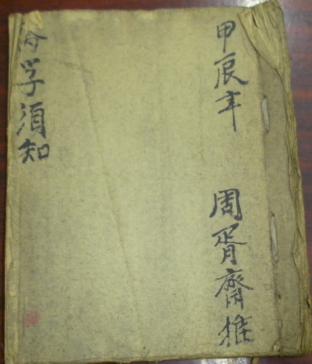 甲辰年 周胥齋推
学須知